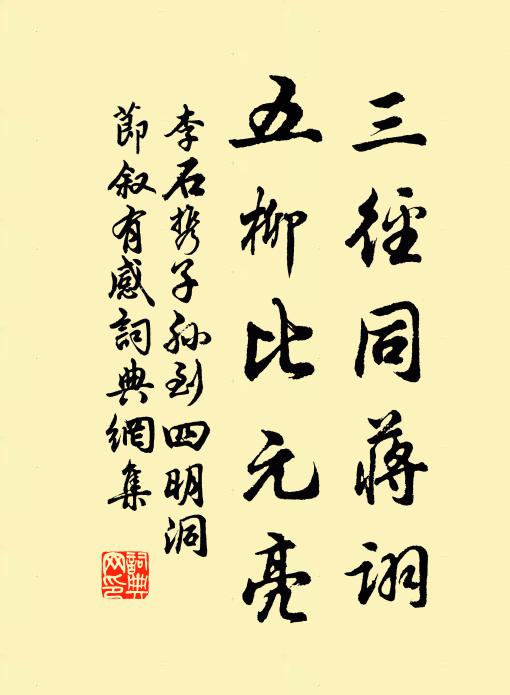 三徑同蔣詡
五柳比元亮
李石携子孫到四明洞
節叙有感詞典網集
詞典網印